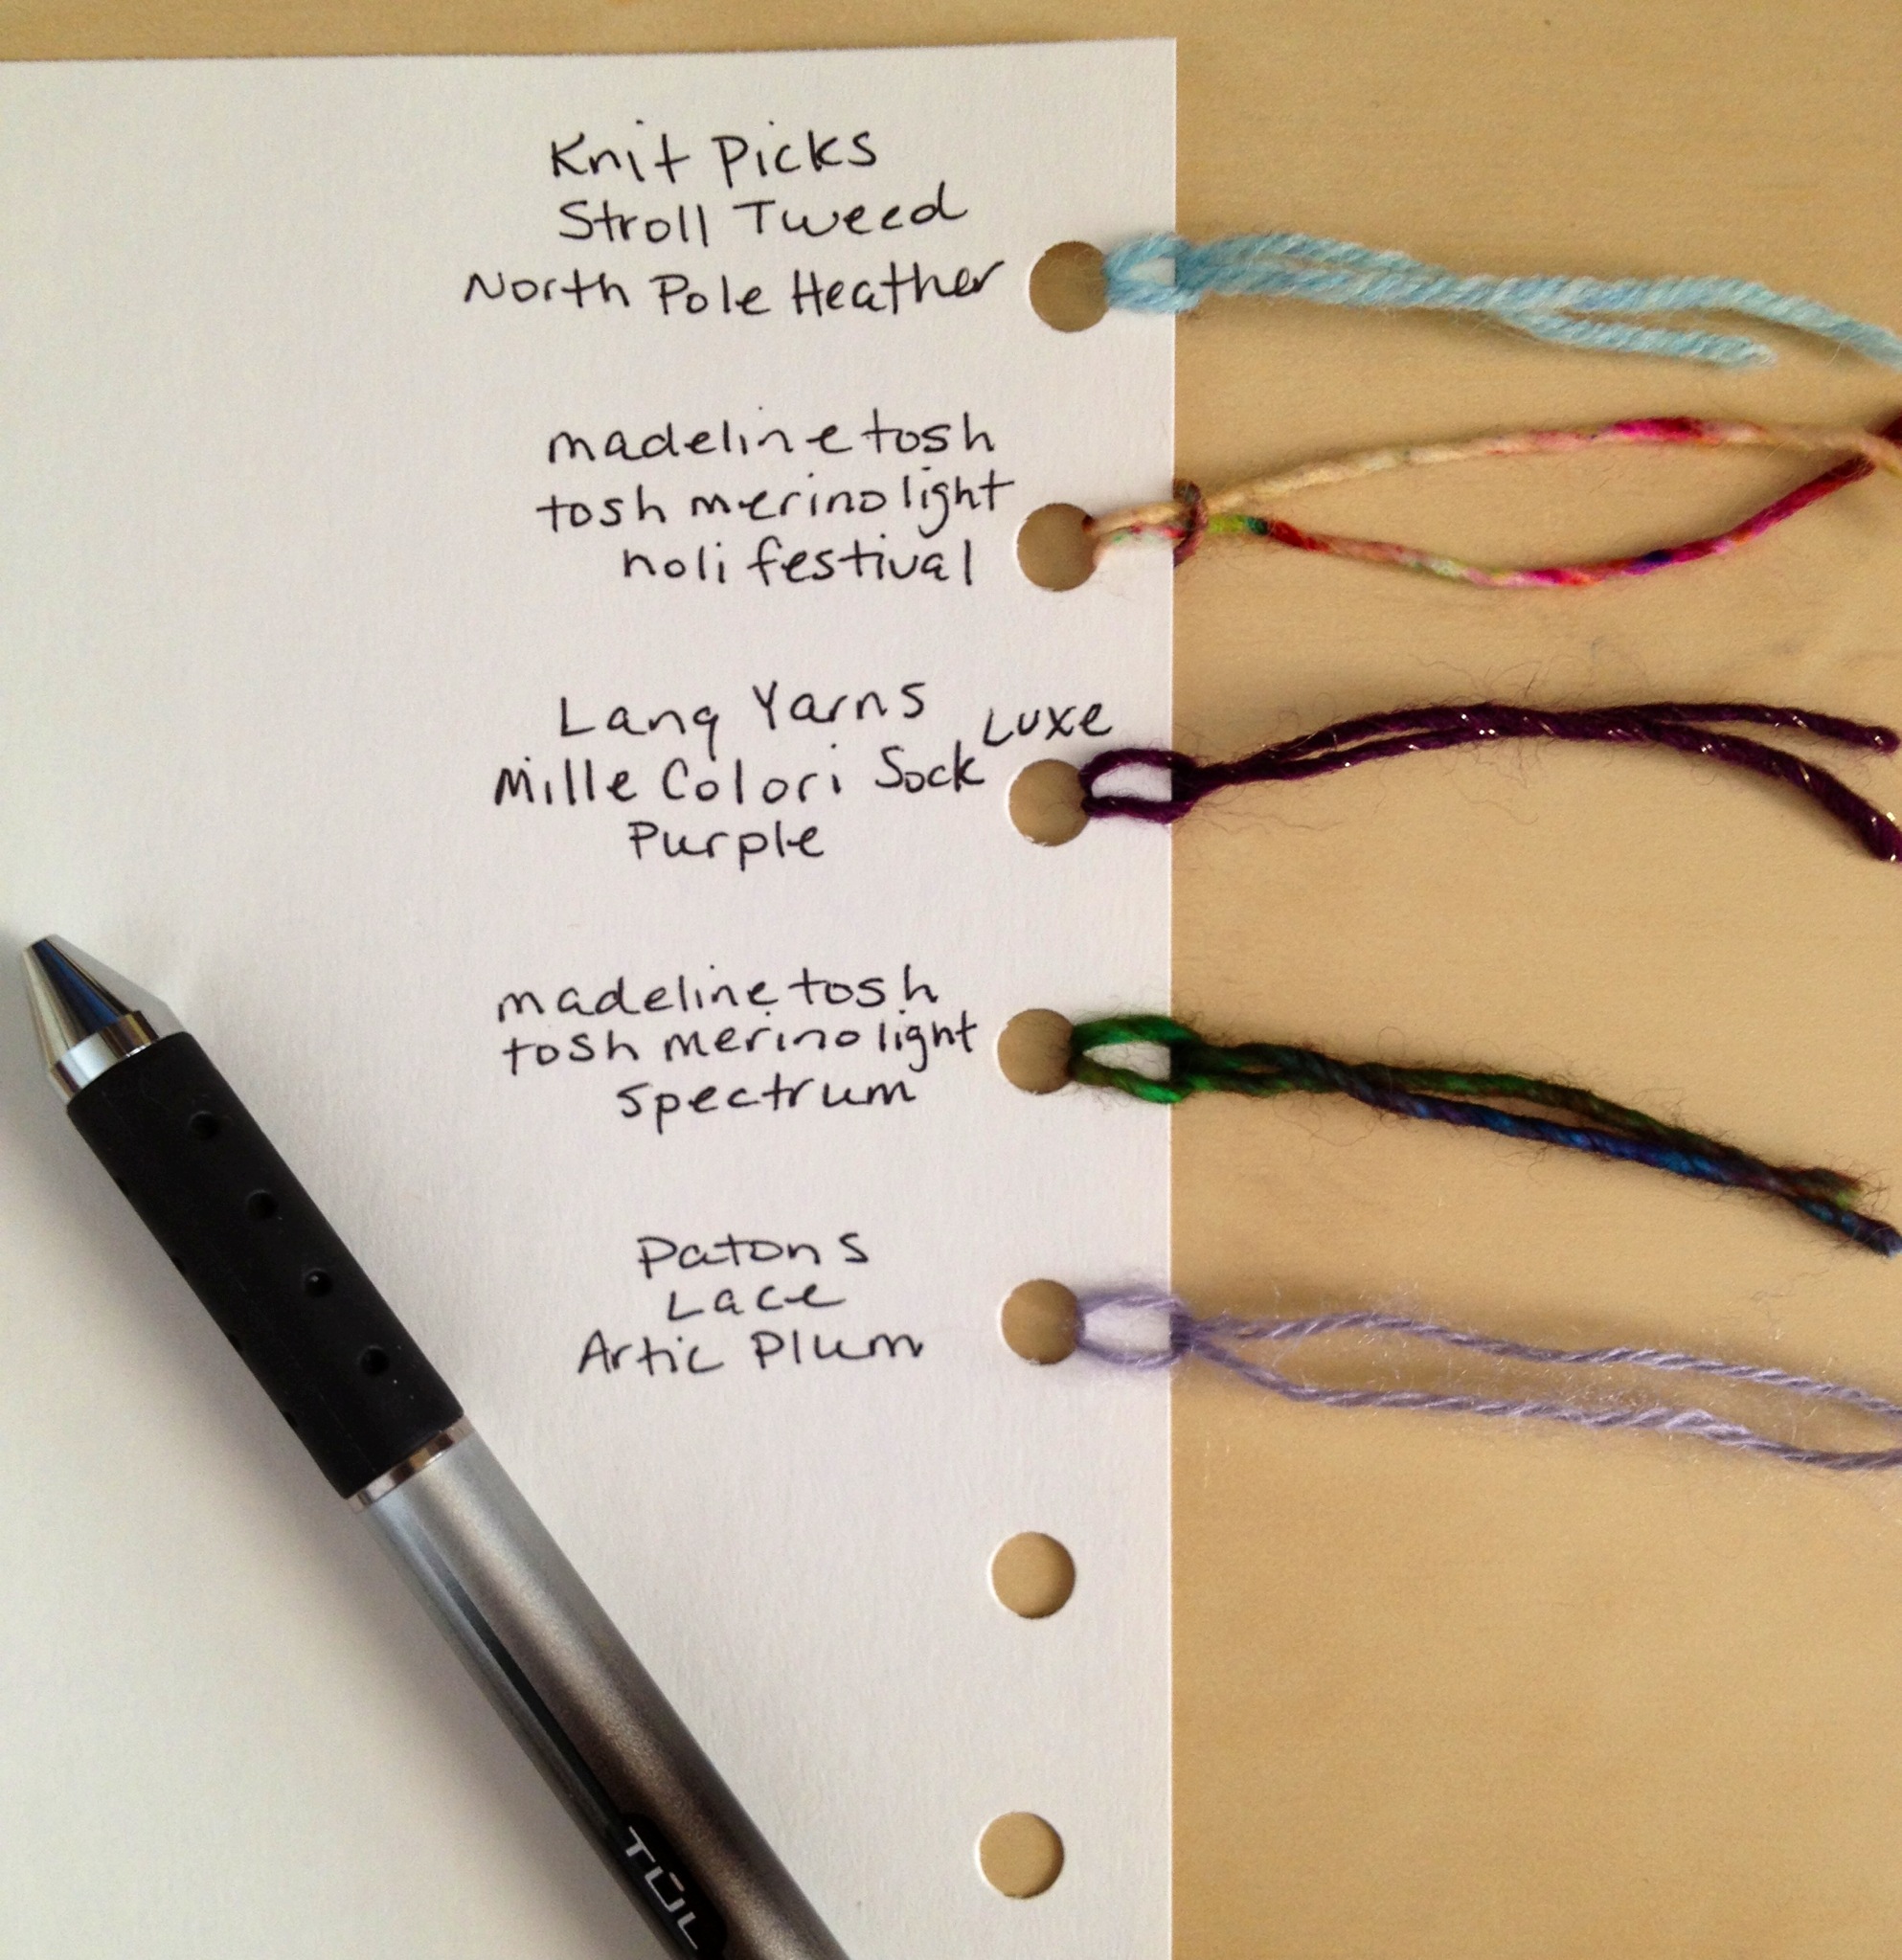 Knit Picks
Stroll Tweed
North Pole Heather
madeline tosh
tosh merino light
holi festival
Lang Yarns
Mille Colori Sock Luxe
Purple
madeline tosh
tosh merino light
spectrum
Patons
Lace
Artic Plum
TŪL